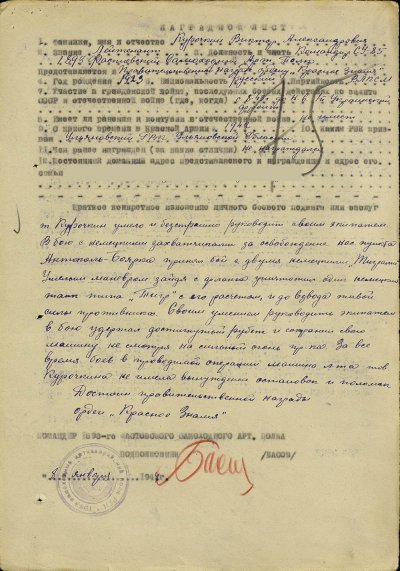 НАГРАДНОЙ ЛИСТ
1. Фамилия, имя и отчество Курочкин Виктор Александрович
2. Звание Лейтенант 3. Должность и часть Командир СУ-85
1893 Фастовский Самоходный Арт. полк
Представляется к Правительственной награде ордену „Красное Знамя“
4. Год рождения 1923 5. Национальность Русский 6. Партийность ВЛКСМ
7. Участие в гражданской войне, последующих боевых действиях по защите
СССР и отечественной войне (где, когда)
8. Имеет ли ранения и контузии в отечественной войне не имеет
9. С какого времени в Красной Армии 10. Каким РВК призван
Ульяновский ГВК Ульяновской Области
11. Чем ранее награжден (за какие отличия) Не награждался
12. Постоянный домашний адрес представляемого к награждению и адрес его
семьи
Краткое конкретное изложение личного боевого подвига или заслуг
т. Курочкин умело и бесстрашно руководит своим экипажем.
В бою с немецкими захватчиками за освобождение нас. пункта
Антополь-Боярка принял бой с двумя немецкими „Тиграми“
Умелым маневром зайдя с фланга уничтожил один немецкий
танк типа „Тигр“ с его расчетом, и до взвода живой
силы противника. Своим умением руководить экипажем
в бою удержал достигнутый рубеж и сохранил свою
машину не смотря на сильный огонь пр-ка. За все
время боев в проводимой операции машина л-та тов.
Курочкина не имела вынужденных остановок и поломок.
Достоин правительственной награды
орден „Красное Знамя“
КОМАНДИР 1893-го ФАСТОВСКОГО САМОХОДНОГО АРТ. ПОЛКА
ПОДПОЛКОВНИК Басов /БАСОВ/
января 194